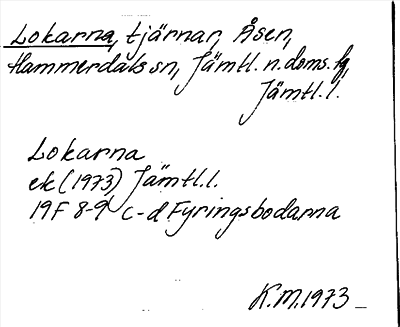 Lokarna, tjärnar, Åsen,
Hammerdals sn, Jämtl. n. doms. fg,
Jämtl. l.
Lokarna
ek (1973) Jämtl. l.
19F 8-9 c-d Fyringsbodarna
K.M. 1973